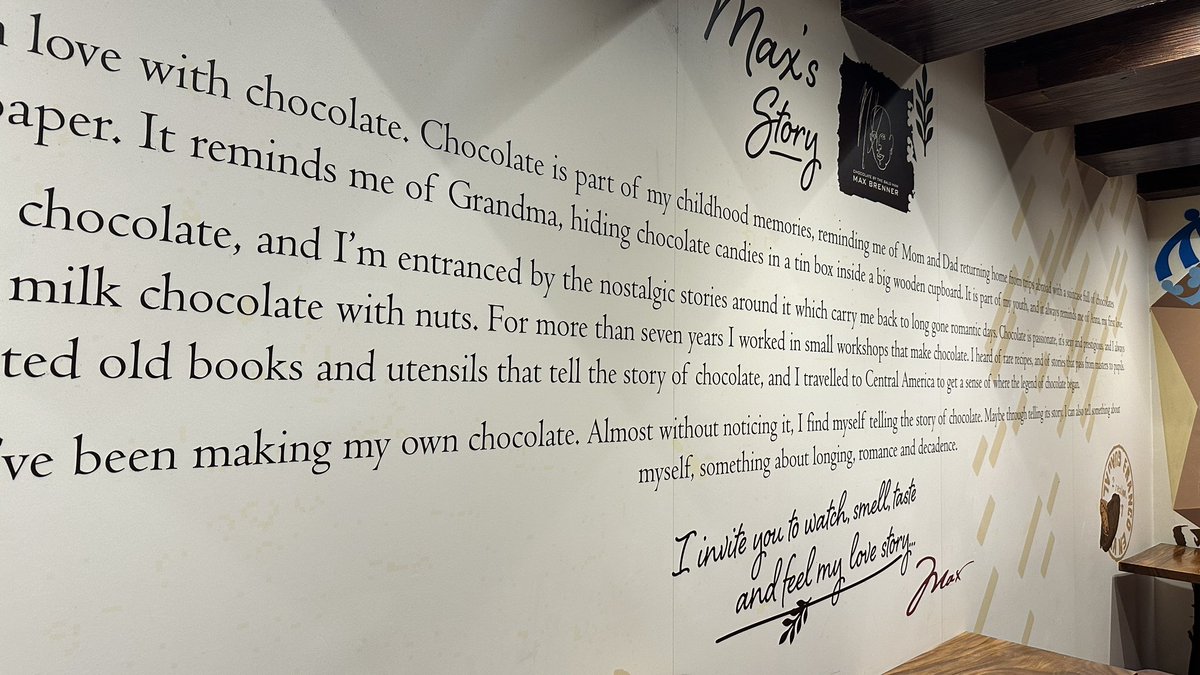 Max's
Story
CHOCOLATE BY THE BALD MAN
MAX BRENNER
love with chocolate. Chocolate is part of my childhood memories, reminding me of Mom and Dad returning home from trips abroad with a suitcase full of chocolates
paper. It reminds me of Grandma, hiding chocolate candies in a tin box inside a big wooden cupboard. It is part of my youth, and it always reminds me of my first love.
chocolate, and I'm entranced by the nostalgic stories around it which carry me back to long gone romantic days. Chocolate is passionate, it's sexy and prestigious and I always
milk chocolate with nuts. For more than seven years I worked in small workshops that make chocolate. I heard of rare recipes, and of stories that pass from masters to pupils.
ted old books and utensils that tell the story of chocolate, and I travelled to Central America to get a sense of where the legend of chocolate began.
've been making my own chocolate. Almost without noticing it, I find myself telling the story of chocolate. Maybe through telling its story, I can also tell something about
myself, something about longing, romance and decadence.
I invite you to watch, smell, taste
and feel my love story...
Max